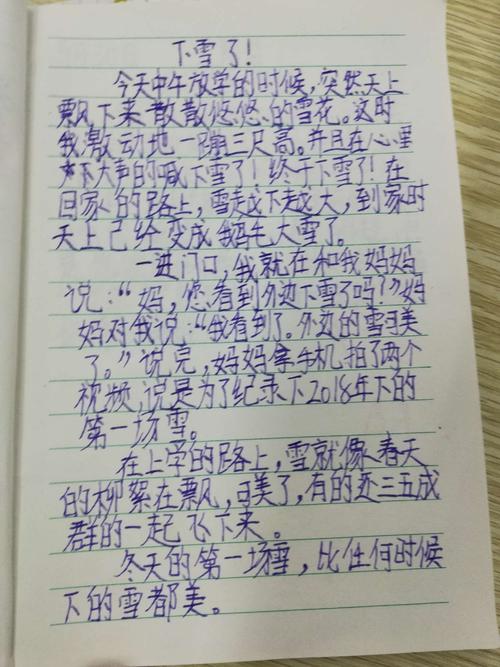 下雪了！
今天中午放学的时候，突然天上
飘下来散散悠悠的雪花。这时
我激动地一蹦三尺高。并且在心里
大声的喊下雪了！终于下雪了！在
回家的路上，雪越下越大，到家时
天上已经变成鹅毛大雪了。
一进门口，我就在和我妈妈
说：“妈，您看到外边下雪了吗？”妈
妈对我说：“我看到了。外边的雪可美
了。”说完，妈妈拿手机拍了两个
视频，说是为了纪录下2018年下的
第一场雪。
在上学的路上，雪就像春天
的柳絮在飘，可美了，有的还三五成
群的一起飞下来。
冬天的第一场雪，比任何时候
下的雪都美。